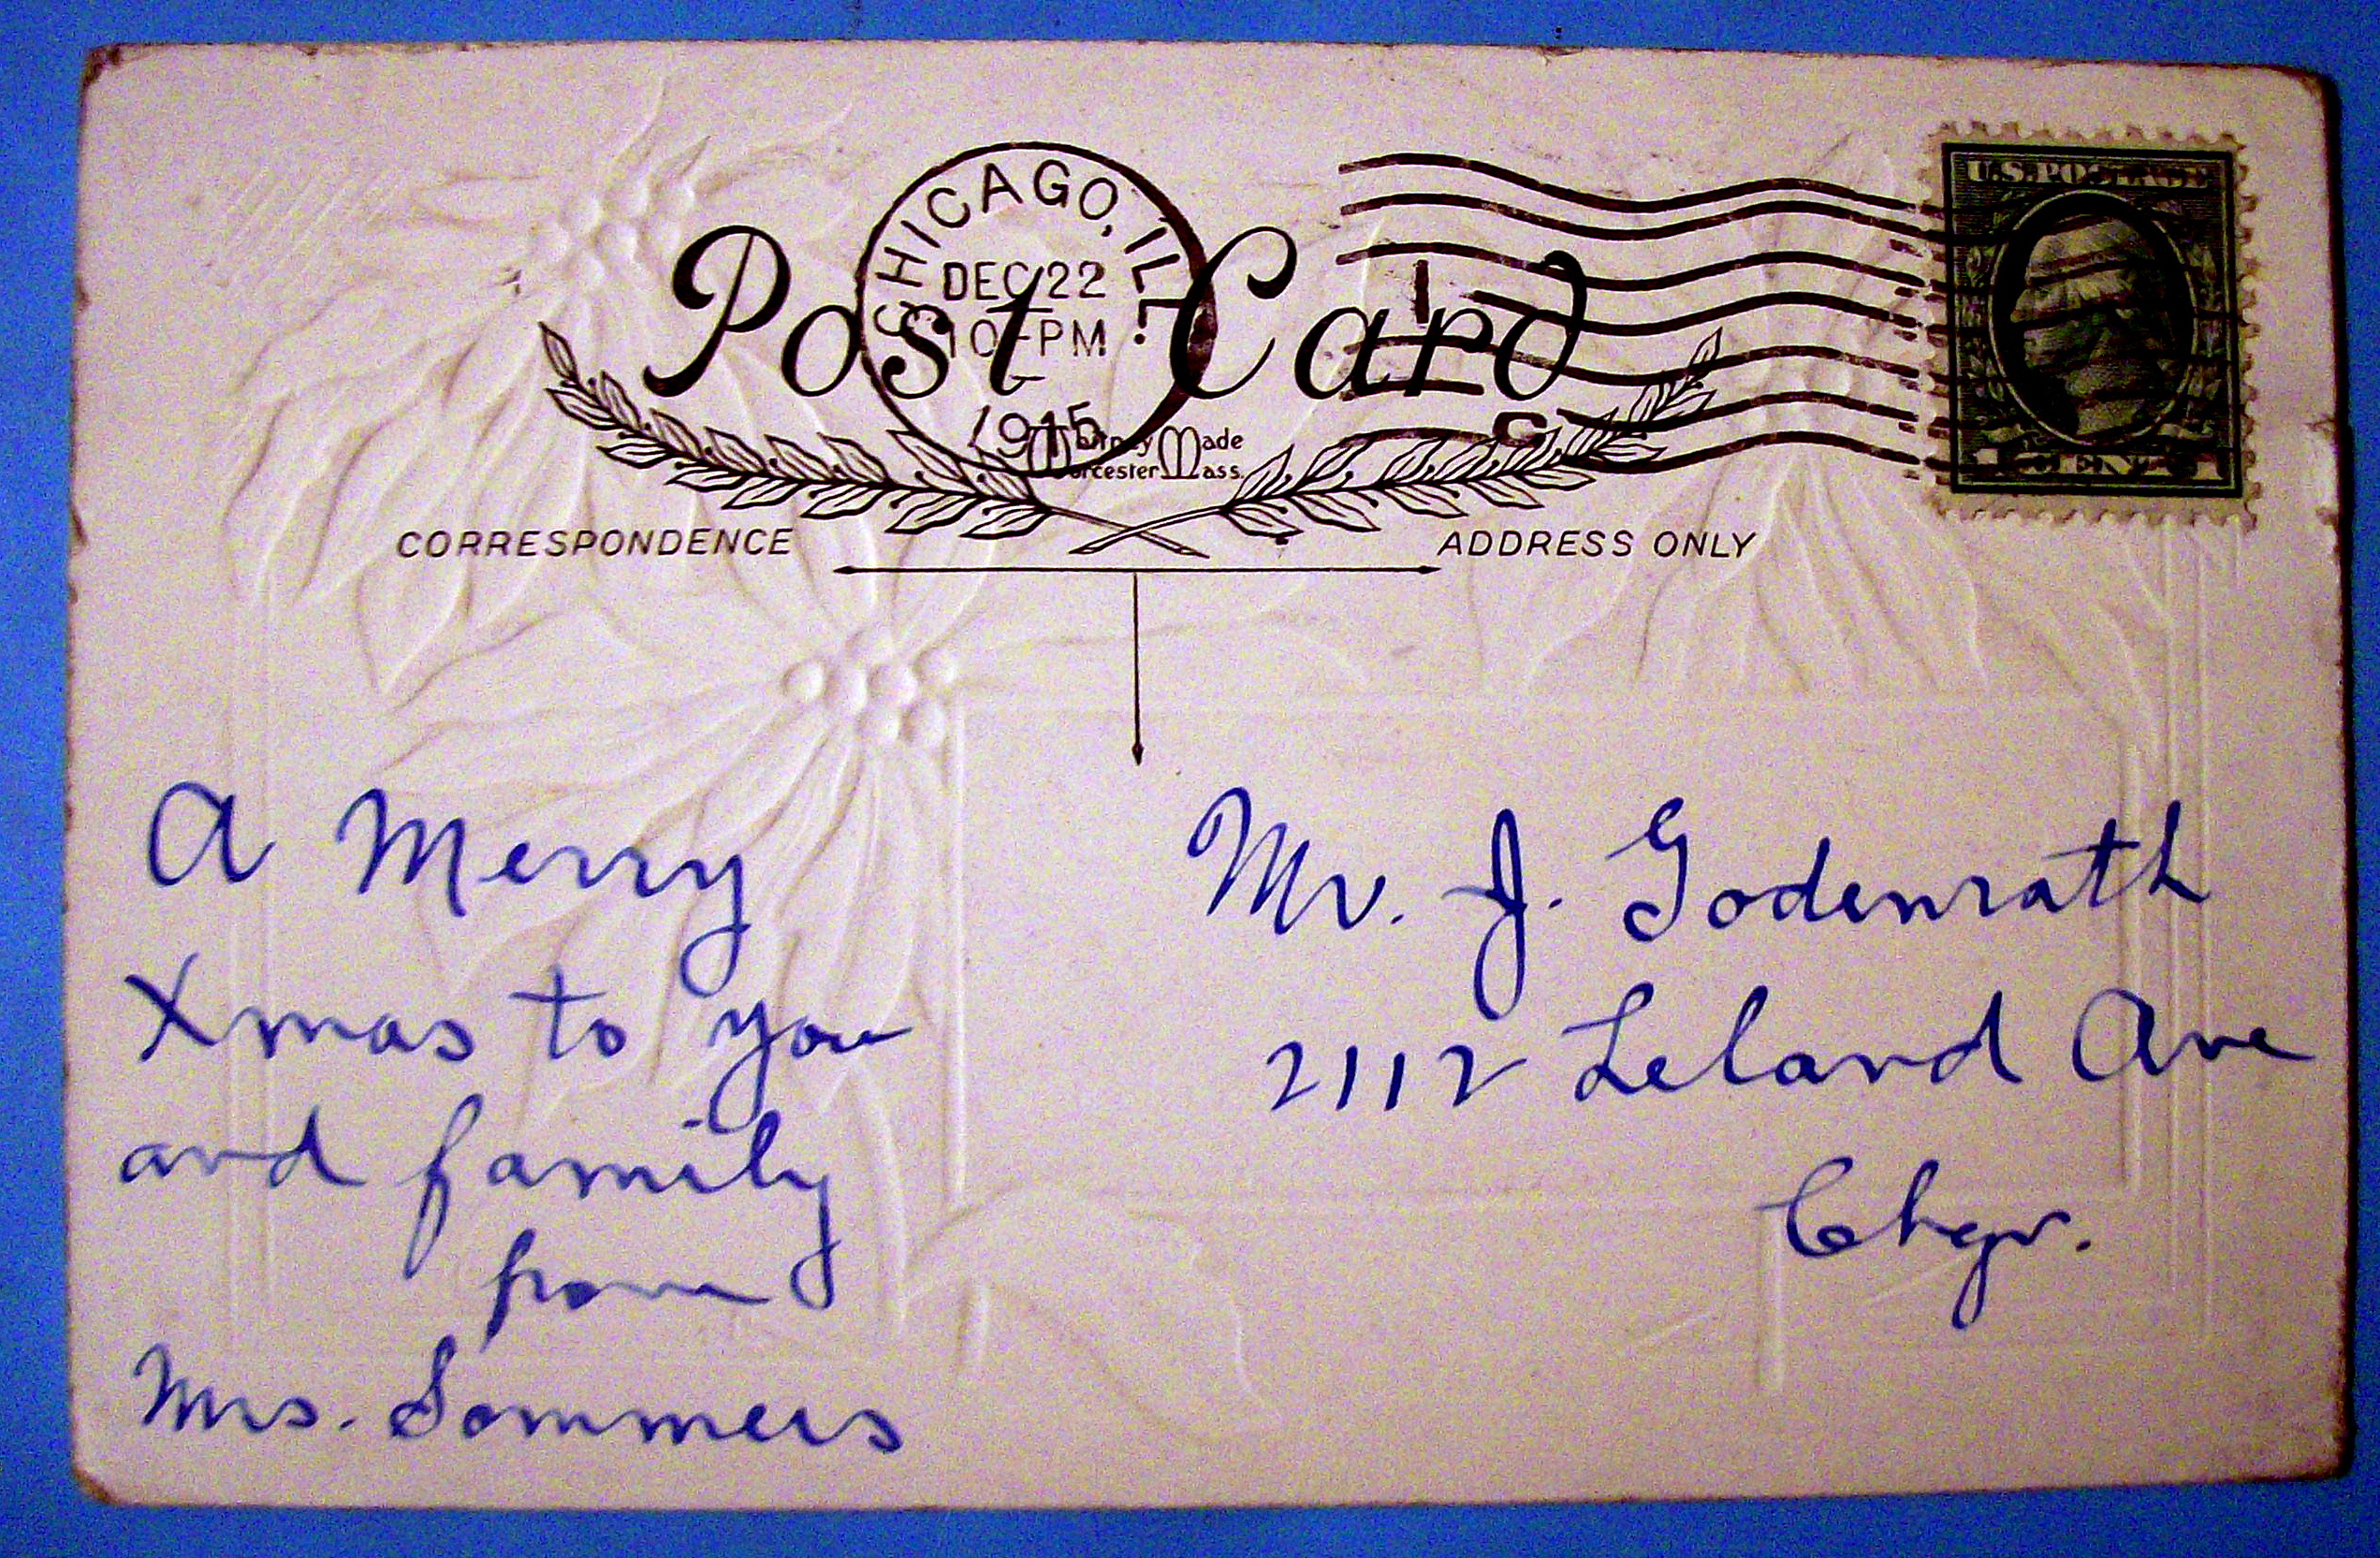 CHICAGO, ILL.
DEC 22
10-PM
1915
Post Card
Whitney Made
Worcester Mass.
U.S. POSTAGE
1 CENT 1
CORRESPONDENCE
ADDRESS ONLY
A Merry
Xmas to you
and family
from
Mrs. Sommers
Mr. J. Godenrath
2112 Leland Ave
Chgo.